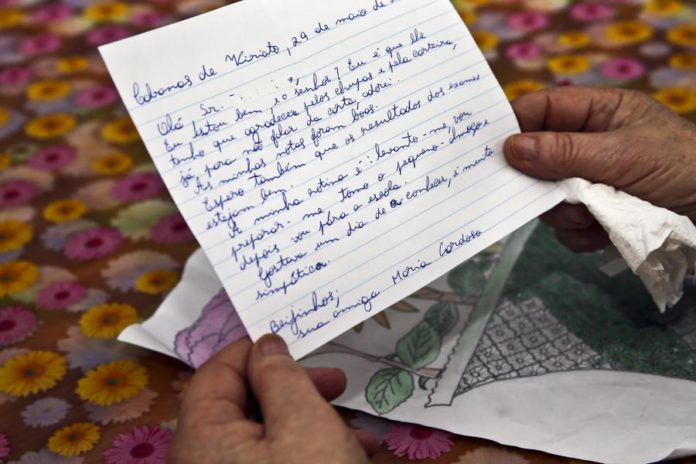 Cabanas de Viriato, 29 de maio de
Olá Sr.
Eu estou bem, e o senhor? Eu é que lhe
tenho que agradecer pelos chupas e pela carteira,
já para não falar da carta, adorei.
As minhas notas foram boas.
Espero também que os resultados dos exames
estejam bem.
A minha rotina é: levanto-me, vou
preparar-me, tomo o pequeno-almoço e
depois vou para a escola.
Gostava um dia de o conhecer, é muito
simpático.
Beijinhos,
sua amiga Maria Cardoso